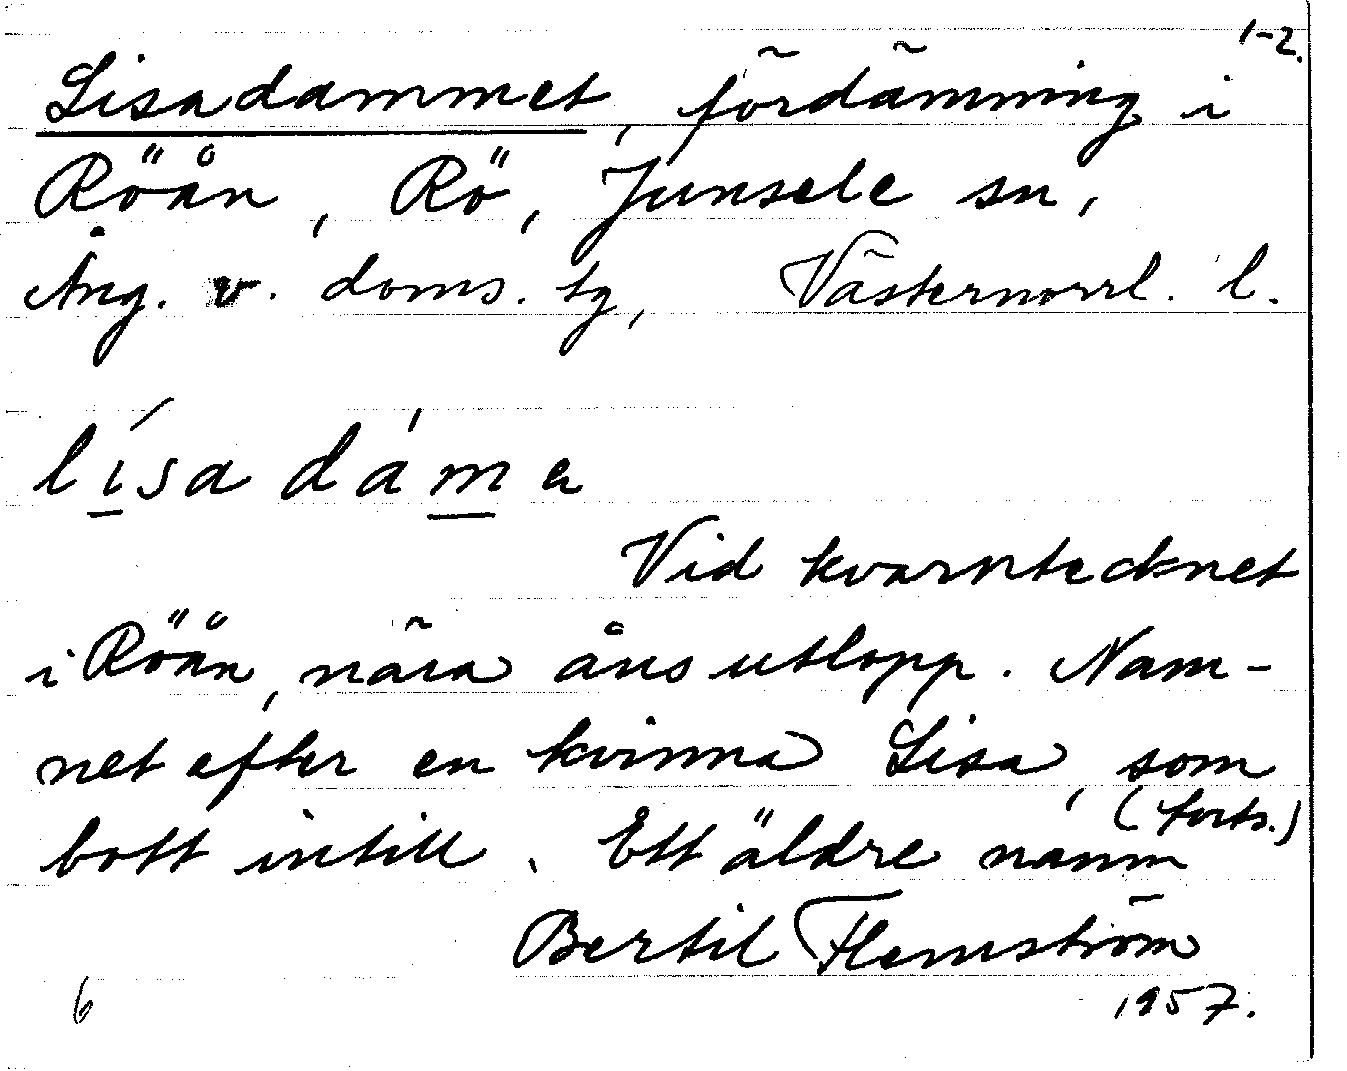 1-2.
Lisadammet, fördämning i
Röån, Rö, Junsele sn,
Ång. v. doms. tg, Västernorrl. l.
lísa dáma
Vid kvarntecknet
i Röån, nära åns utlopp. Nam-
net efter en kvinna Lisa, som
bott intill. Ett äldre namn
(forts.)
Bertil Flemström
1957.
6